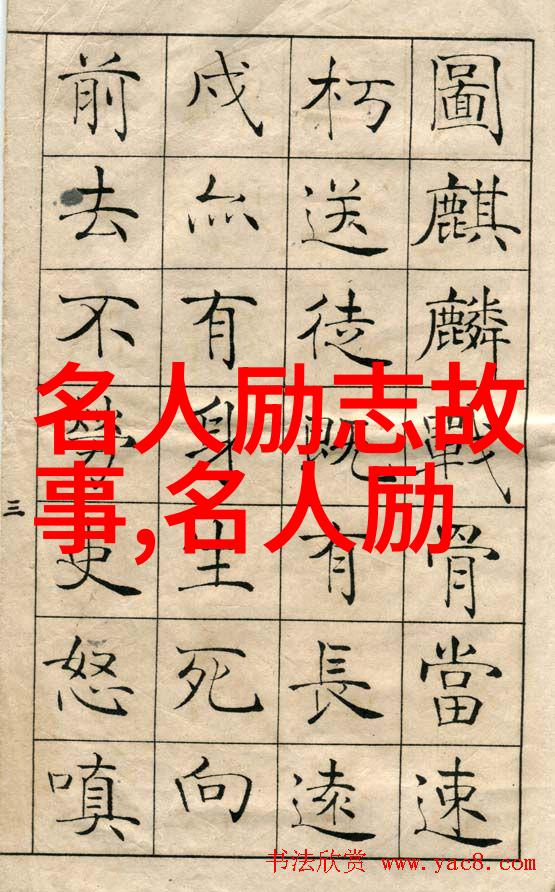 圖麒麟戰骨當速
朽送徒既有長遠
戍亦有身生死向
前去不勞吏怒嗔
三
名人励志故
事,名人励
书法欣赏 www.yac8.com